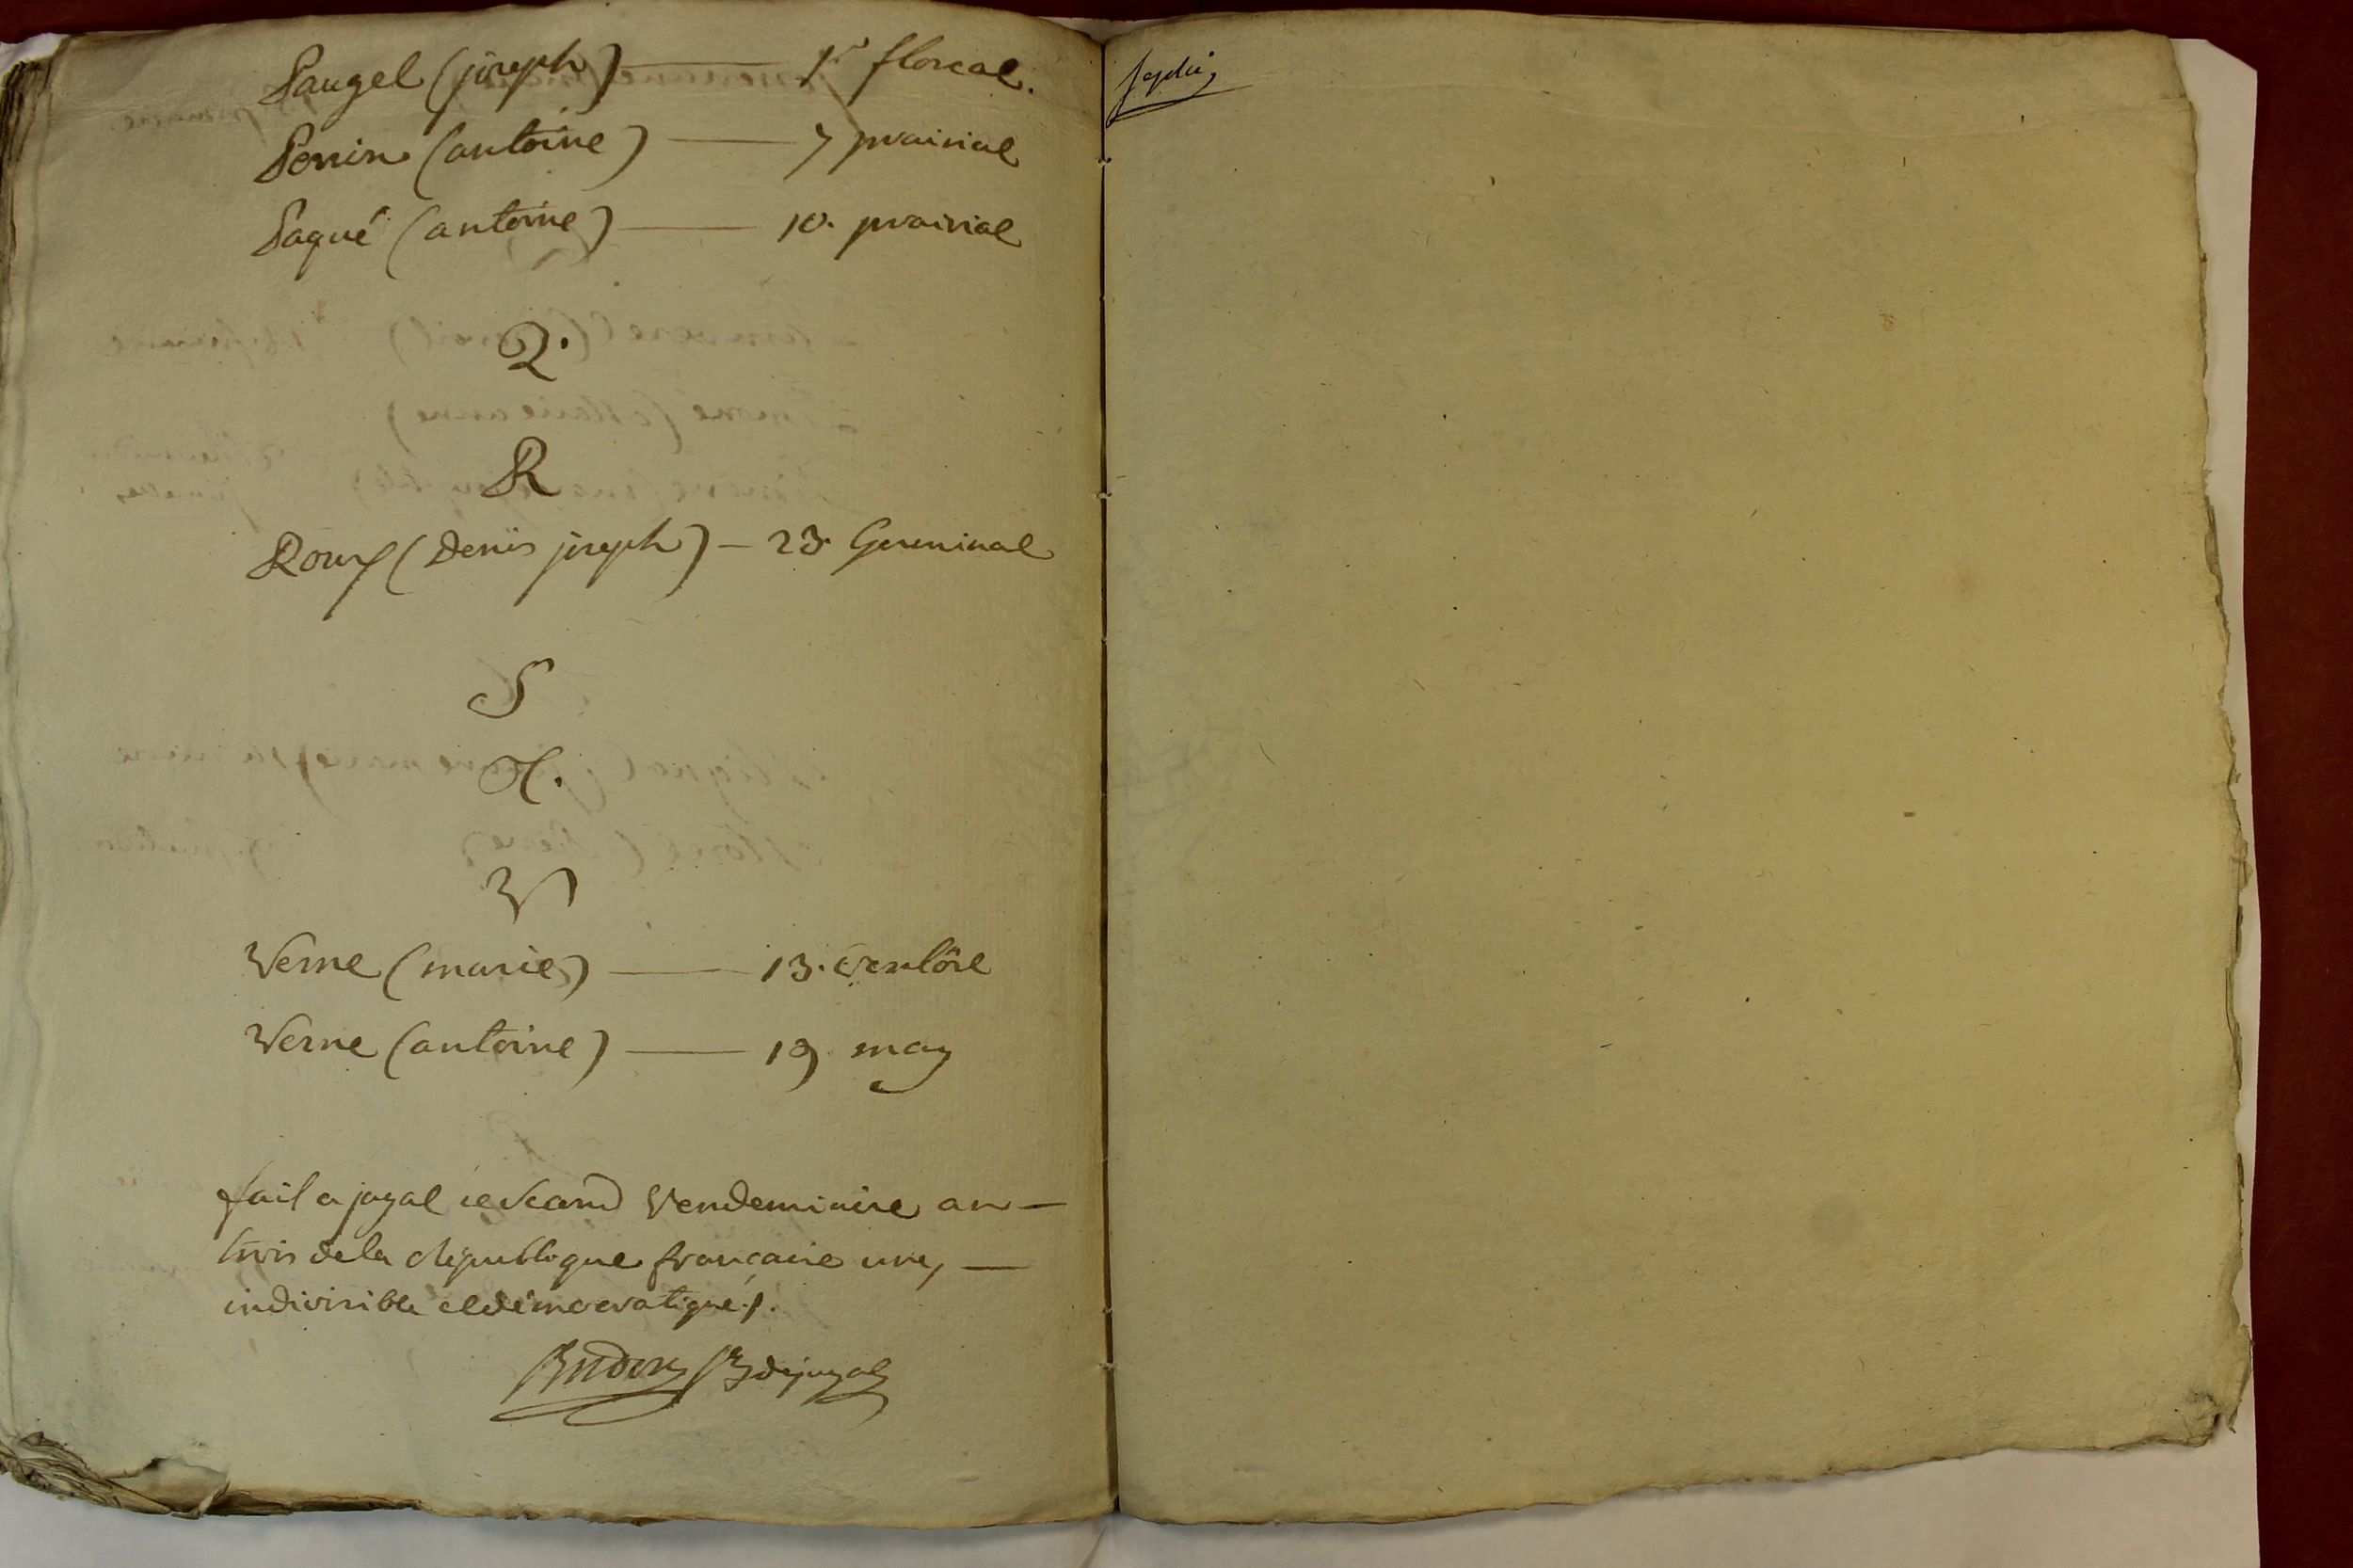 Paugel (joseph) — 1er floreal.
Perrin (antoine) — 7 prairial
Paqué (antoine) — 10. prairial
Q.
R
Roux (Denis joseph) — 23. Germinal
S
T.
V
Verne (marie) — 13. ventôse
Verne (antoine) — 19 may
fait a juzal le second Vendemiaire an —
trois de la république francaise une, —
indivisible et démocratique ./.